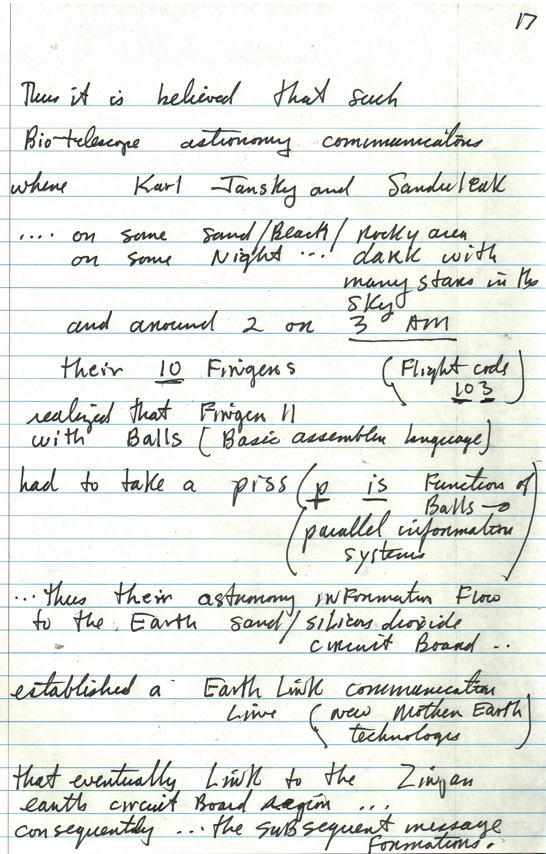 17
Thus it is believed that such
Bio-telescope astronomy communications
where Karl Jansky and Sanduleak
.... on some sand/Beach/rocky area
on some Night ... dark with
many stars in the
sky
and around 2 or 3 AM
their 10 Fingers (Flight code
103)
realized that Finger 11
with Balls (Basic assembler language)
had to take a piss (p is Function of
Balls →
(parallel information
systems)
... thus their astronomy information Flow
to the Earth sand/silicon dioxide
circuit Board ..
established a Earth Link communication
Line (new Mother Earth
technologies)
that eventually Link to the
earth circuit Board region ...
consequently ... the subsequent message
formations.